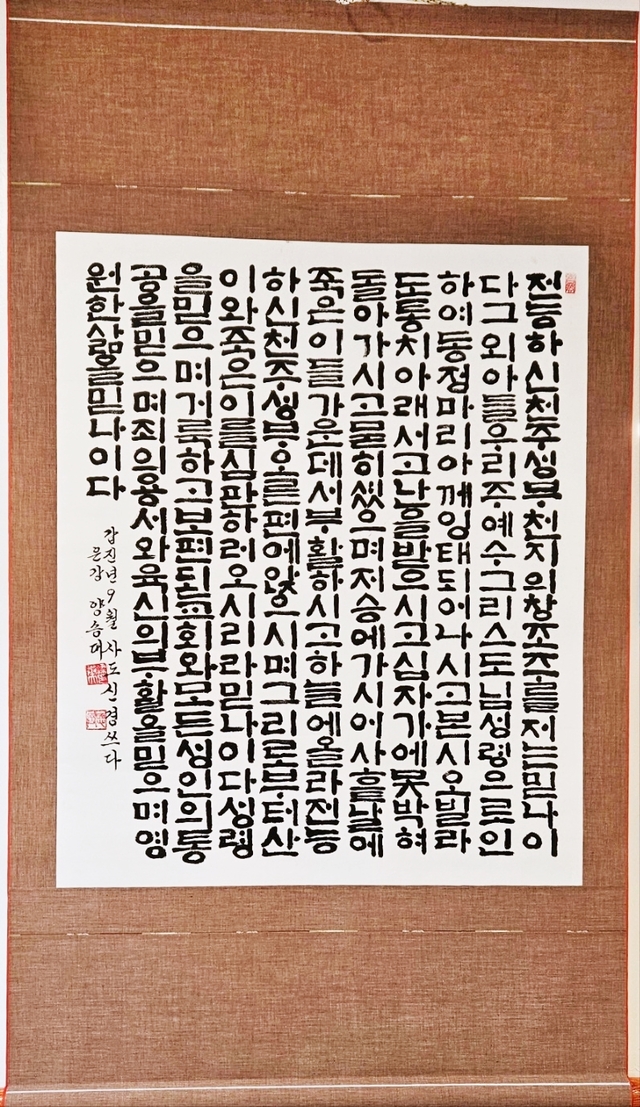 전능하신천주성부천지의창조주를저는믿나이
다그외아들우리주예수그리스도님성령으로인
하여동정마리아께잉태되어나시고본시오빌라
도통치아래서고난을받으시고십자가에못박혀
돌아가시고묻히셨으며저승에가시어사흗날에
죽은이들가운데서부활하시고하늘에올라전능
하신천주성부오른편에앉으시며그리로부터산
이와죽은이를심판하러오시리라믿나이다성령
을믿으며거룩하고보편된교회와모든성인의통
공을믿으며죄의용서와육신의부활을믿으며영
원한삶을믿나이다
갑진년9월 사도신경쓰다
문강 양승대